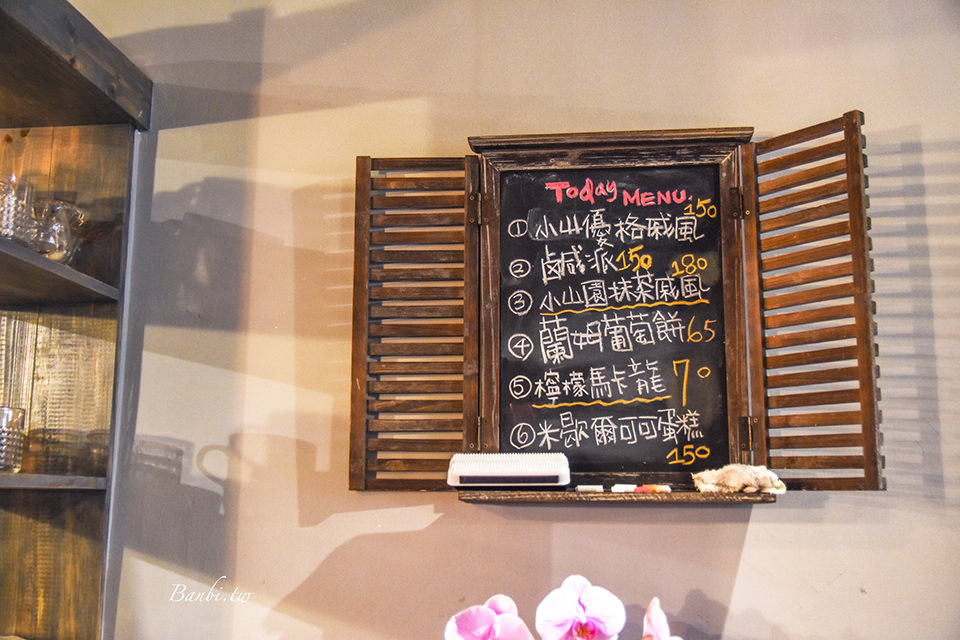 Today MENU.
① 小山優格戚風 150
② 鹹派 150
③ 小山園抹茶戚風 180
④ 蘭姆葡萄餅 65
⑤ 檸檬馬卡龍 70
⑥ 米歇爾可可蛋糕 150
Banbi.tw